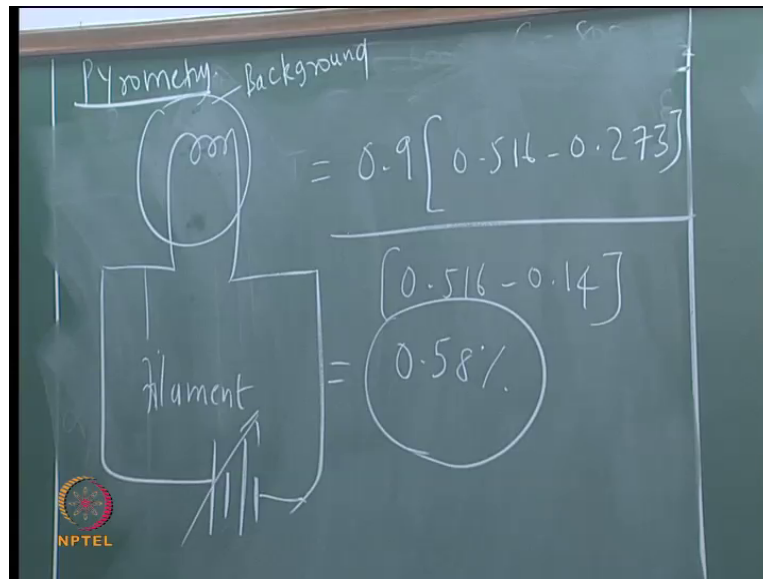 Pyrometry.
Background
= 0.9[0.516-0.273]
[0.516-0.14]
Filament
= 0.58%
NPTEL